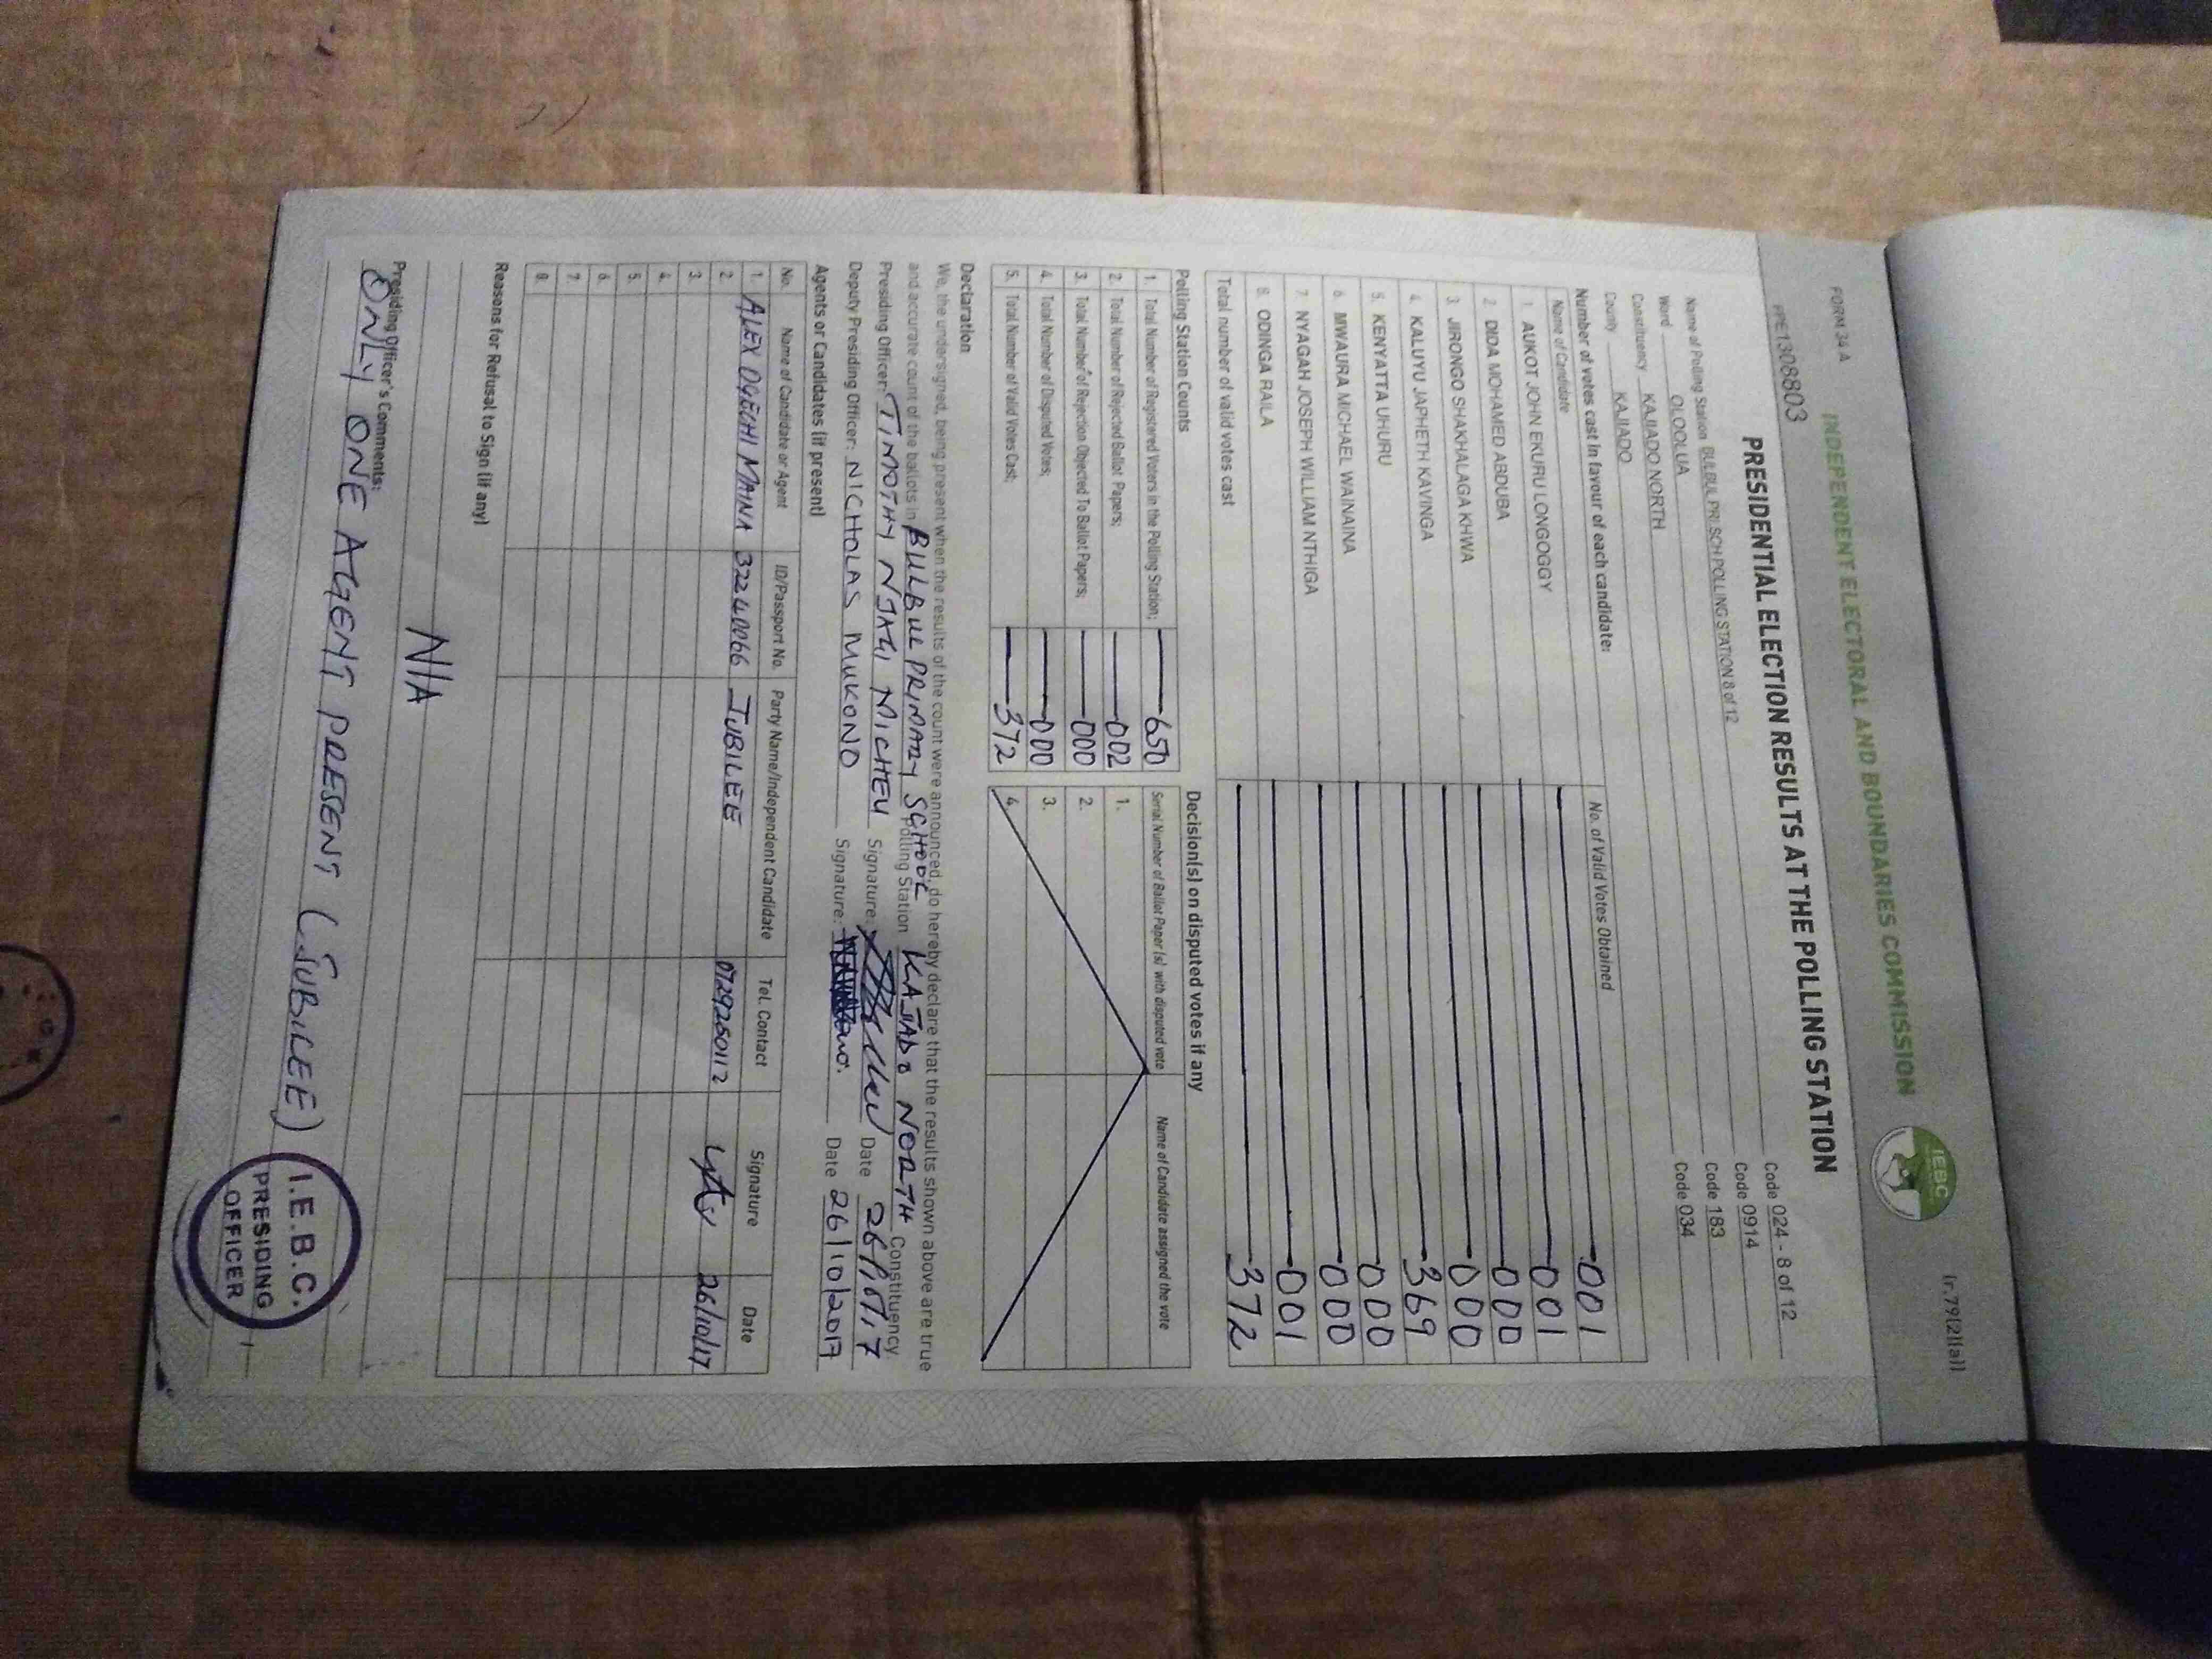 FORM 34 A
INDEPENDENT ELECTORAL AND BOUNDARIES COMMISSION
IEBC
(r.79(2)(a))
PPE1308803
PRESIDENTIAL ELECTION RESULTS AT THE POLLING STATION
Name of Polling Station BULBUL PRI SCH POLLING STATION 8 of 12 Code 024 - 8 of 12
Ward OLOOLUA Code 0914
Constituency KAJIADO NORTH Code 183
County KAJIADO Code 034
Number of votes cast in favour of each candidate:
Name of Candidate No. of Valid Votes Obtained
1. AUKOT JOHN EKURU LONGOGGY 001
2. DIDA MOHAMED ABDUBA 001
3. JIRONGO SHAKHALAGA KHWA 000
4. KALUYU JAPHETH KAVINGA 000
5. KENYATTA UHURU 369
6. MWAURA MICHAEL WAINAINA 000
7. NYAGAH JOSEPH WILLIAM NTHIGA 000
8. ODINGA RAILA 001
Total number of valid votes cast 372
Polling Station Counts
1. Total Number of Registered Voters in the Polling Station; 650
2. Total Number of Rejected Ballot Papers; 002
3. Total Number of Rejection Objected To Ballot Papers; 000
4. Total Number of Disputed Votes; 000
5. Total Number of Valid Votes Cast; 372
Decision(s) on disputed votes if any
Serial Number of Ballot Paper (s) with disputed vote Name of Candidate assigned the vote
1.
2.
3.
4.
Declaration
We, the undersigned, being present when the results of the count were announced, do hereby declare that the results shown above are true
and accurate count of the ballots in BULBUL PRIMARY SCHOOL Polling Station KAJIADO NORTH Constituency.
Presiding Officer: TIMOTHY NJAGI MICHEU Signature: Date 26/10/17
Deputy Presiding Officer: NICHOLAS MUKONO Signature: Date 26/10/2017
Agents or Candidates (if present)
No. Name of Candidate or Agent ID/Passport No. Party Name/Independent Candidate Tel. Contact Signature Date
1. ALEX OGECHI MAINA 32240066 JUBILEE 0729250112 26/10/17
2.
3.
4.
5.
6.
7.
8.
Reasons for Refusal to Sign (if any)
N/A
Presiding Officer's Comments:
ONLY ONE AGENT PRESENT (JUBILEE)
I.E.B.C.
PRESIDING
OFFICER